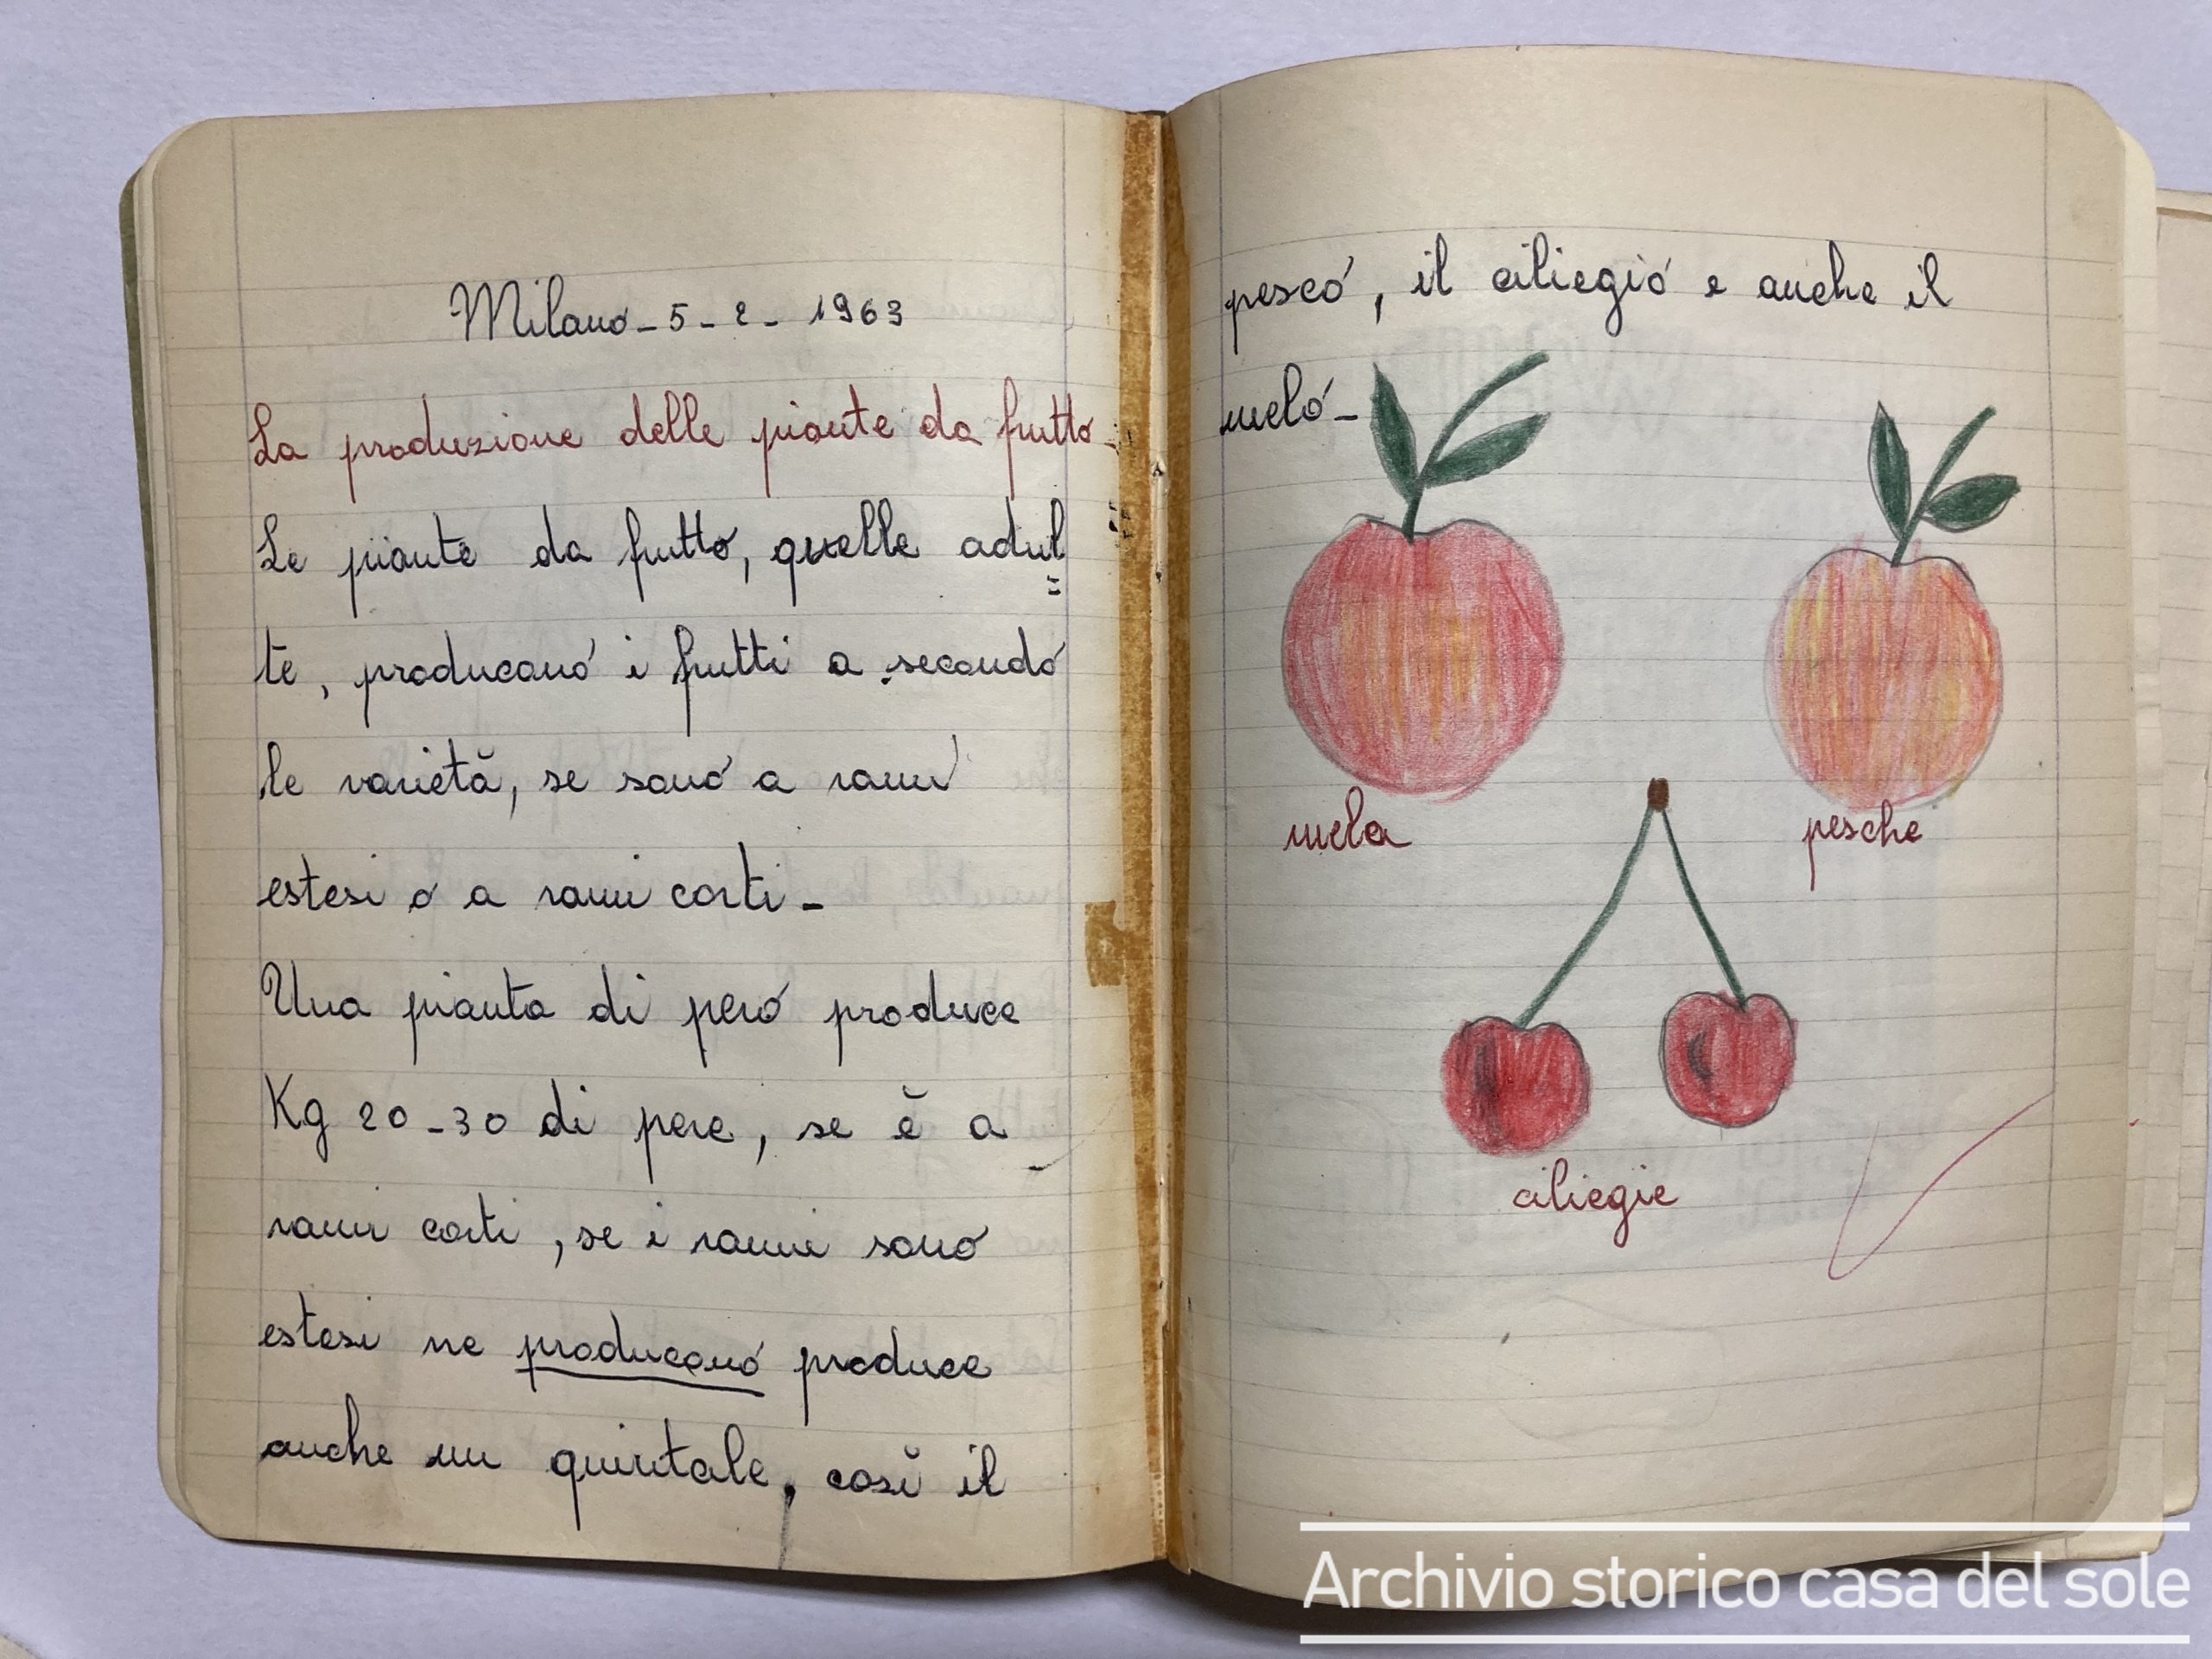 Milano - 5 - 2 - 1963
La produzione delle piante da frutto -
Le piante da frutto, quelle adul=
te, producono i frutti a secondo
le varietà, se sono a rami
estesi o a rami corti -
Una pianta di pero produce
Kg 20 - 30 di pere, se è a
rami corti, se i rami sono
estesi ne producono produce
anche un quintale, così il
pesco, il ciliegio e anche il
melo -
mela
pesche
ciliegie
Archivio storico casa del sole